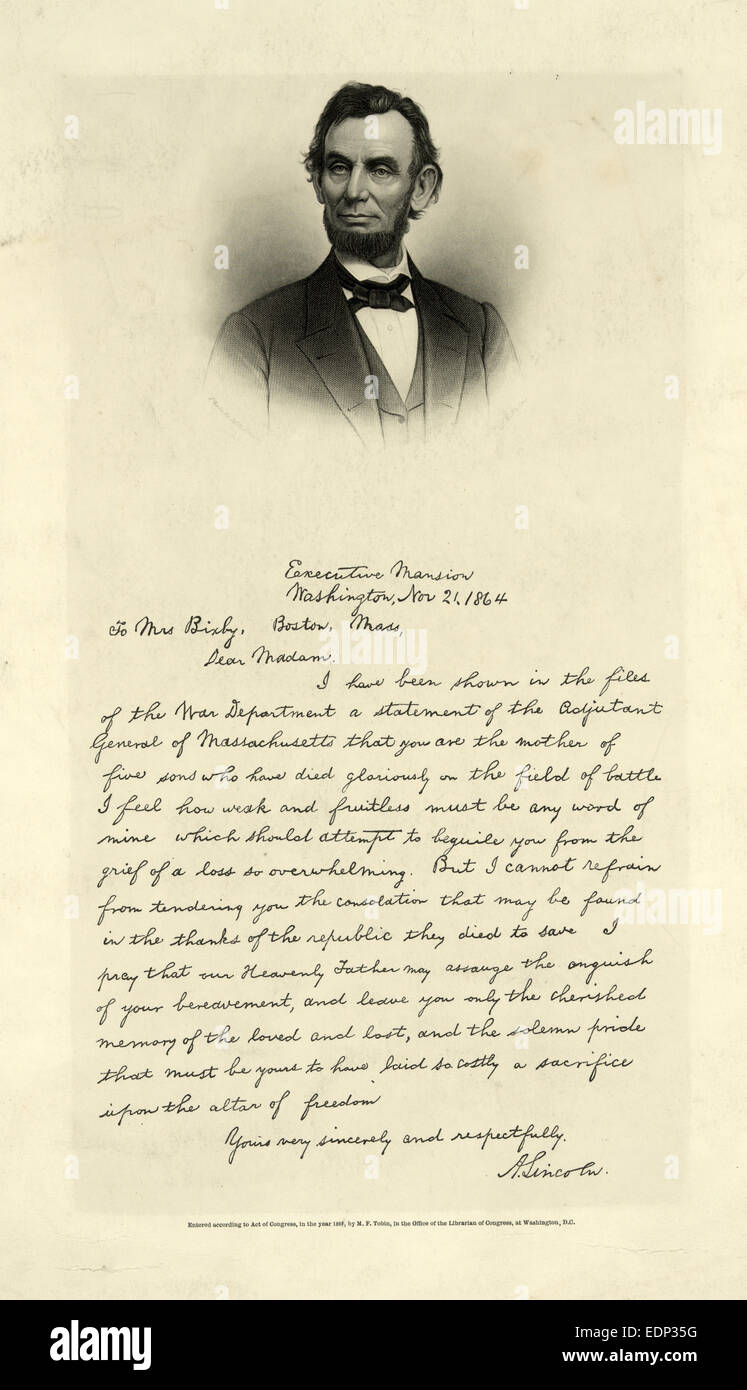 Executive Mansion
Washington, Nov 21, 1864
To Mrs Bixby, Boston, Mass,
Dear Madam.
I have been shown in the files
of the War Department a statement of the Adjutant
General of Massachusetts that you are the mother of
five sons who have died gloriously on the field of battle
I feel how weak and fruitless must be any word of
mine which should attempt to beguile you from the
grief of a loss so overwhelming. But I cannot refrain
from tendering you the consolation that may be found
in the thanks of the republic they died to save I
pray that our Heavenly Father may assauge the anguish
of your bereavement, and leave you only the cherished
memory of the loved and lost, and the solemn pride
that must be yours to have laid so costly a sacrifice
upon the altar of freedom
Yours very sincerely and respectfully.
A. Lincoln.
Entered according to Act of Congress, in the year by M. F. Tobin, in the Office of the Librarian of Congress, at Washington, D.C.
alamy
alamy
Image ID: EDP35G
www.alamy.com